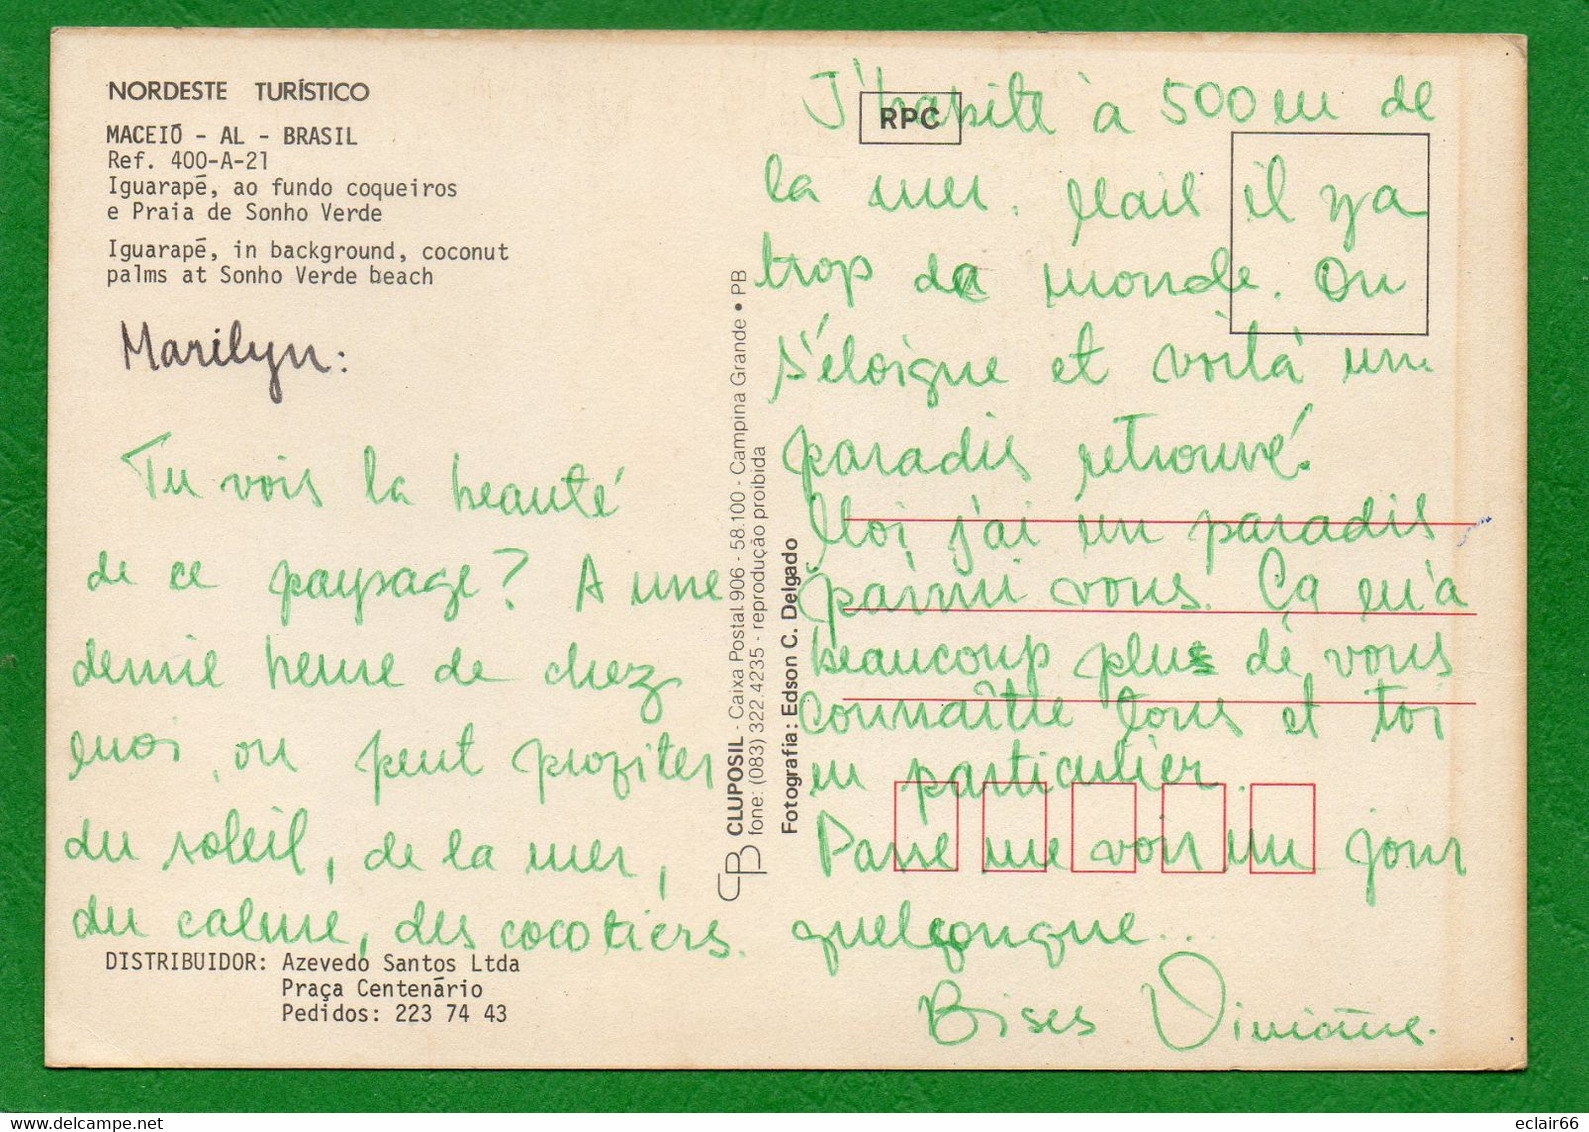 NORDESTE TURÍSTICO
MACEIÓ - AL - BRASIL
Ref. 400-A-21
Iguarapé, ao fundo coqueiros
e Praia de Sonho Verde
Iguarapé, in background, coconut
palms at Sonho Verde beach
Marilyn:
Tu vois la beauté
de ce paysage? A une
demie heure de chez
moi, on peut profiter
du soleil, de la mer,
du calme, des cocotiers.
DISTRIBUIDOR: Azevedo Santos Ltda
Praça Centenário
Pedidos: 223 74 43
CLUPOSIL - Caixa Postal 906 - 58.100 - Campina Grande • PB
fone: (083) 322.4235 - reprodução proibida
Fotografia: Edson C. Delgado
RPC
J'habite à 500 m de
la mer. Mais il y a
trop de monde. On
s'éloigne et voilà un
paradis retrouvé.
Moi, j'ai un paradis
parmi vous. Ça m'a
beaucoup plus de vous
connaître tous et toi
en particulier.
Passe me voir un jour
quelconque...
Bises Viviane.
eclair66